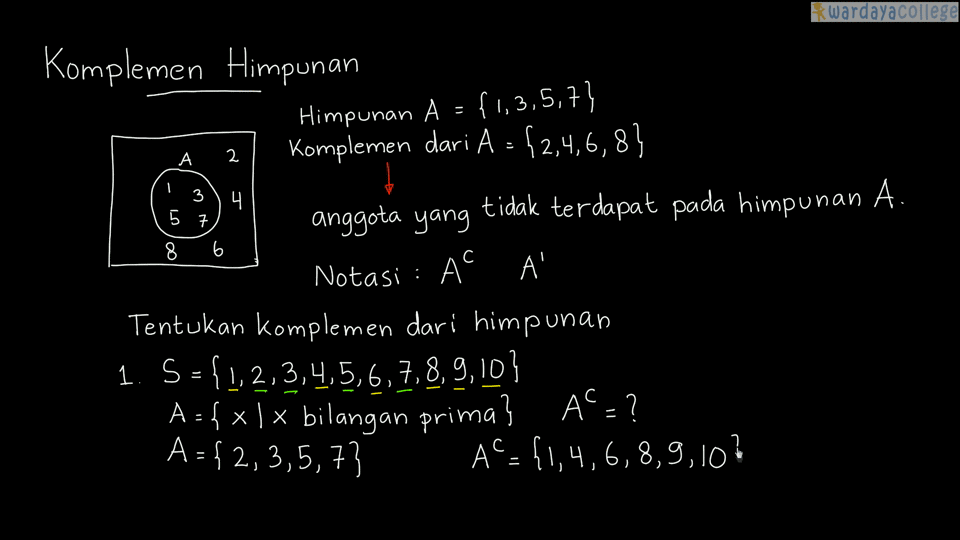 wardayacollege
Komplemen Himpunan
Himpunan A = {1, 3, 5, 7}
Komplemen dari A = {2, 4, 6, 8}
A 2
1 3 4
5 7
8 6
anggota yang tidak terdapat pada himpunan A.
Notasi : Aᶜ A'
Tentukan komplemen dari himpunan
1. S = {1, 2, 3, 4, 5, 6, 7, 8, 9, 10}
A = {x | x bilangan prima} Aᶜ = ?
A = {2, 3, 5, 7} Aᶜ = {1, 4, 6, 8, 9, 10}